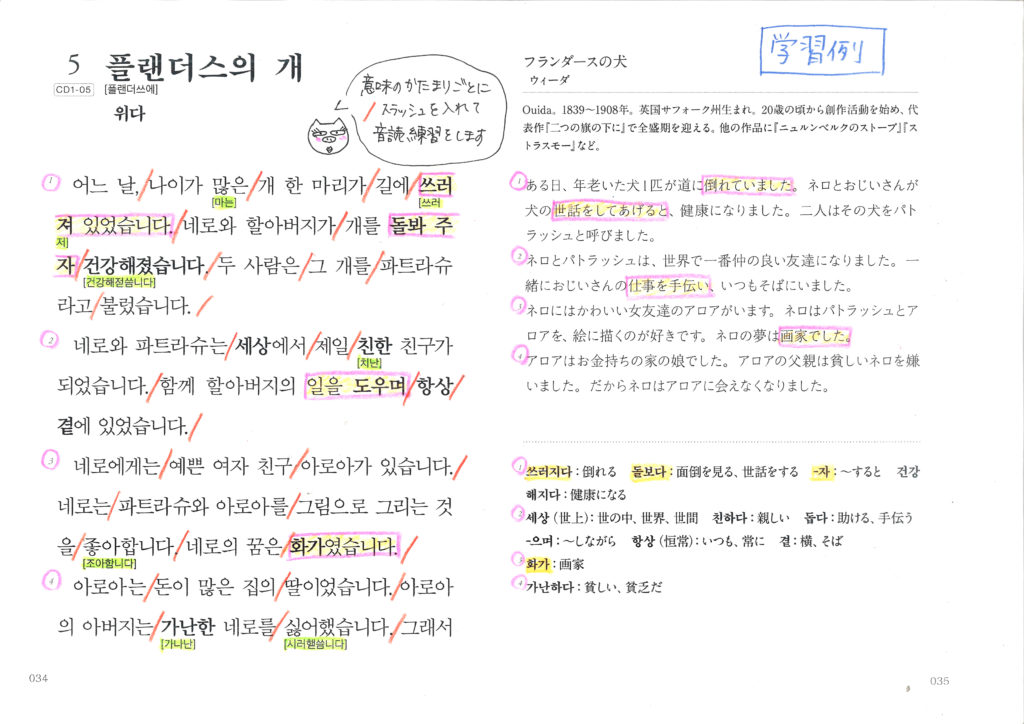 5 플랜더스의 개
CD1-05 [플랜더쓰에]
위다
意味のかたまりごとに
スラッシュを入れて
音読練習をします
① 어느 날, 나이가 많은 개 한 마리가 길에 쓰러
[마는] [쓰러
져 있었습니다. 네로와 할아버지가 개를 돌봐 주
저]
자 건강해졌습니다. 두 사람은 그 개를 파트라슈
[건강해젇씀니다]
라고 불렀습니다.
② 네로와 파트라슈는 세상에서 제일 친한 친구가
[치난]
되었습니다. 함께 할아버지의 일을 도우며 항상
곁에 있었습니다.
③ 네로에게는 예쁜 여자 친구 아로아가 있습니다.
네로는 파트라슈와 아로아를 그림으로 그리는 것
을 좋아합니다. 네로의 꿈은 화가였습니다.
[조아함니다]
④ 아로아는 돈이 많은 집의 딸이었습니다. 아로아
의 아버지는 가난한 네로를 싫어했습니다. 그래서
[가나난] [시러핻씀니다]
034
学習例
フランダースの犬
ウィーダ
Ouida。1839〜1908年。英国サフォーク州生まれ。20歳の頃から創作活動を始め、代
表作『二つの旗の下に』で全盛期を迎える。他の作品に『ニュルンベルクのストーブ』『ス
トラスモー』など。
① ある日、年老いた犬1匹が道に倒れていました。ネロとおじいさんが
犬の世話をしてあげると、健康になりました。二人はその犬をパト
ラッシュと呼びました。
② ネロとパトラッシュは、世界で一番仲の良い友達になりました。一
緒におじいさんの仕事を手伝い、いつもそばにいました。
③ ネロにはかわいい女友達のアロアがいます。ネロはパトラッシュとア
ロアを、絵に描くのが好きです。ネロの夢は画家でした。
④ アロアはお金持ちの家の娘でした。アロアの父親は貧しいネロを嫌
いました。だからネロはアロアに会えなくなりました。
① 쓰러지다：倒れる 돌보다：面倒を見る、世話をする -자：〜すると 건강
해지다：健康になる
② 세상（世上）：世の中、世界、世間 친하다：親しい 돕다：助ける、手伝う
-으며：〜しながら 항상（恒常）：いつも、常に 곁：横、そば
③ 화가：画家
④ 가난하다：貧しい、貧乏だ
035